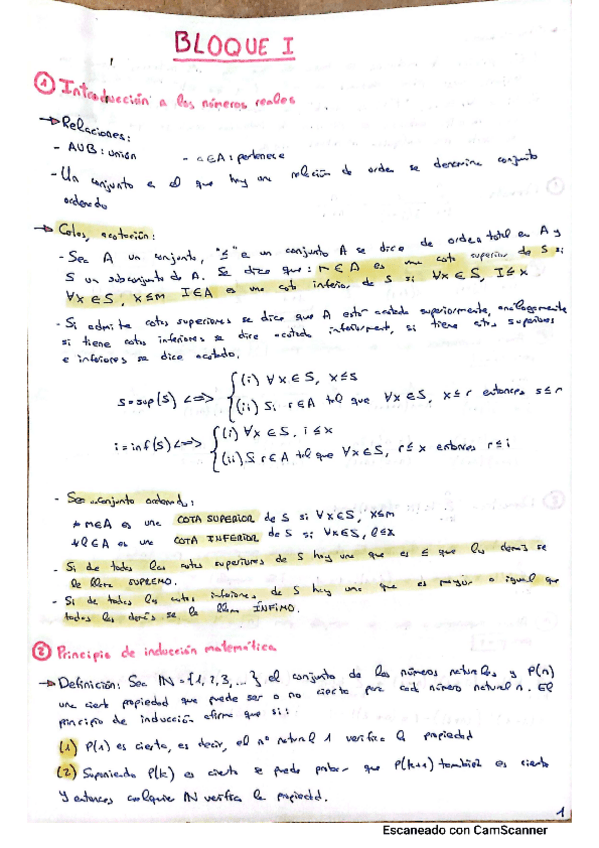 BLOQUE I
① Introducción a los números reales
→ Relaciones:
- AUB: unión - a∈A: pertenece
- Un conjunto en el que hay una relación de orden se denomina conjunto
ordenado
→ Cotas, acotación:
- Sea A un conjunto, "≤" e un conjunto A se dice de orden total en A y
S un subconjunto de A. Se dice que: r∈A es una cota superior de S si
∀x∈S, x≤m I∈A es una cota inferior de S si ∀x∈S, I≤x
- Si admite cotas superiores se dice que A está acotado superiormente, análogamente
si tiene cotas inferiores se dice acotado inferiorment, si tiene cotas superiores
e inferiores se dice acotado.
s=sup(S) <=> {(i) ∀x∈S, x≤s
(ii) Si r∈A tal que ∀x∈S, x≤r entonces s≤r
i=inf(S) <=> {(i) ∀x∈S, i≤x
(ii) S r∈A tal que ∀x∈S, r≤x entonces r≤i
- Sea conjunto ordenado:
* m∈A es una COTA SUPERIOR de S si ∀x∈S, x≤m
* l∈A es una COTA INFERIOR de S si ∀x∈S, l≤x
- Si de todas las cotas superiores de S hay una que es ≤ que las demás se
le llama SUPREMO.
- Si de todas las cotas inferiores de S hay una que es mayor o igual que
todas las demás se la llama ÍNFIMO.
② Principio de inducción matemática
→ Definición: Sea IN={1,2,3,...} el conjunto de los números naturales y P(n)
una cierta propiedad que puede ser o no cierta para cada número natural n. El
principio de inducción afirma que si:
(1) P(1) es cierta, es decir, el nº natural 1 verifica la propiedad
(2) Suponiendo P(k) es cierto se puede probar que P(k+1) también es cierto
Y entonces cualquier IN verifica la propiedad.
1
Escaneado con CamScanner